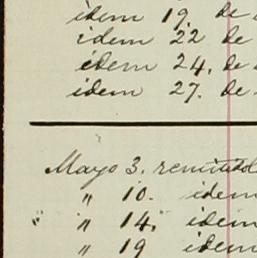 idem 19. de
idem 22 de
idem 24. de
idem 27. de
Mayo 3. remitido
" 10. idem
" 14. idem
" 19 idem